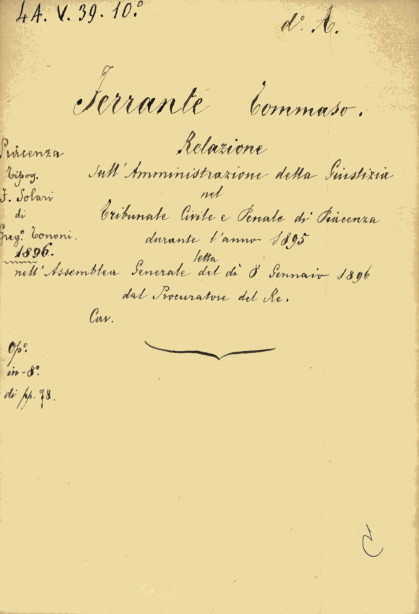 4A. V. 39. 10.°
d.° A.
Ferrante Tommaso.
Relazione
sull'Amministrazione della Giustizia
nel
Tribunale Civile e Penale di Piacenza
durante l'anno 1895
letta
nell'Assemblea Generale del dì 8 Gennaio 1896
dal Procuratore del Re.
Cav.
Piacenza
Tipog.
F. Solari
di
Greg.° Tononi.
1896.
Op.°
in-8.°
di pp. 78.